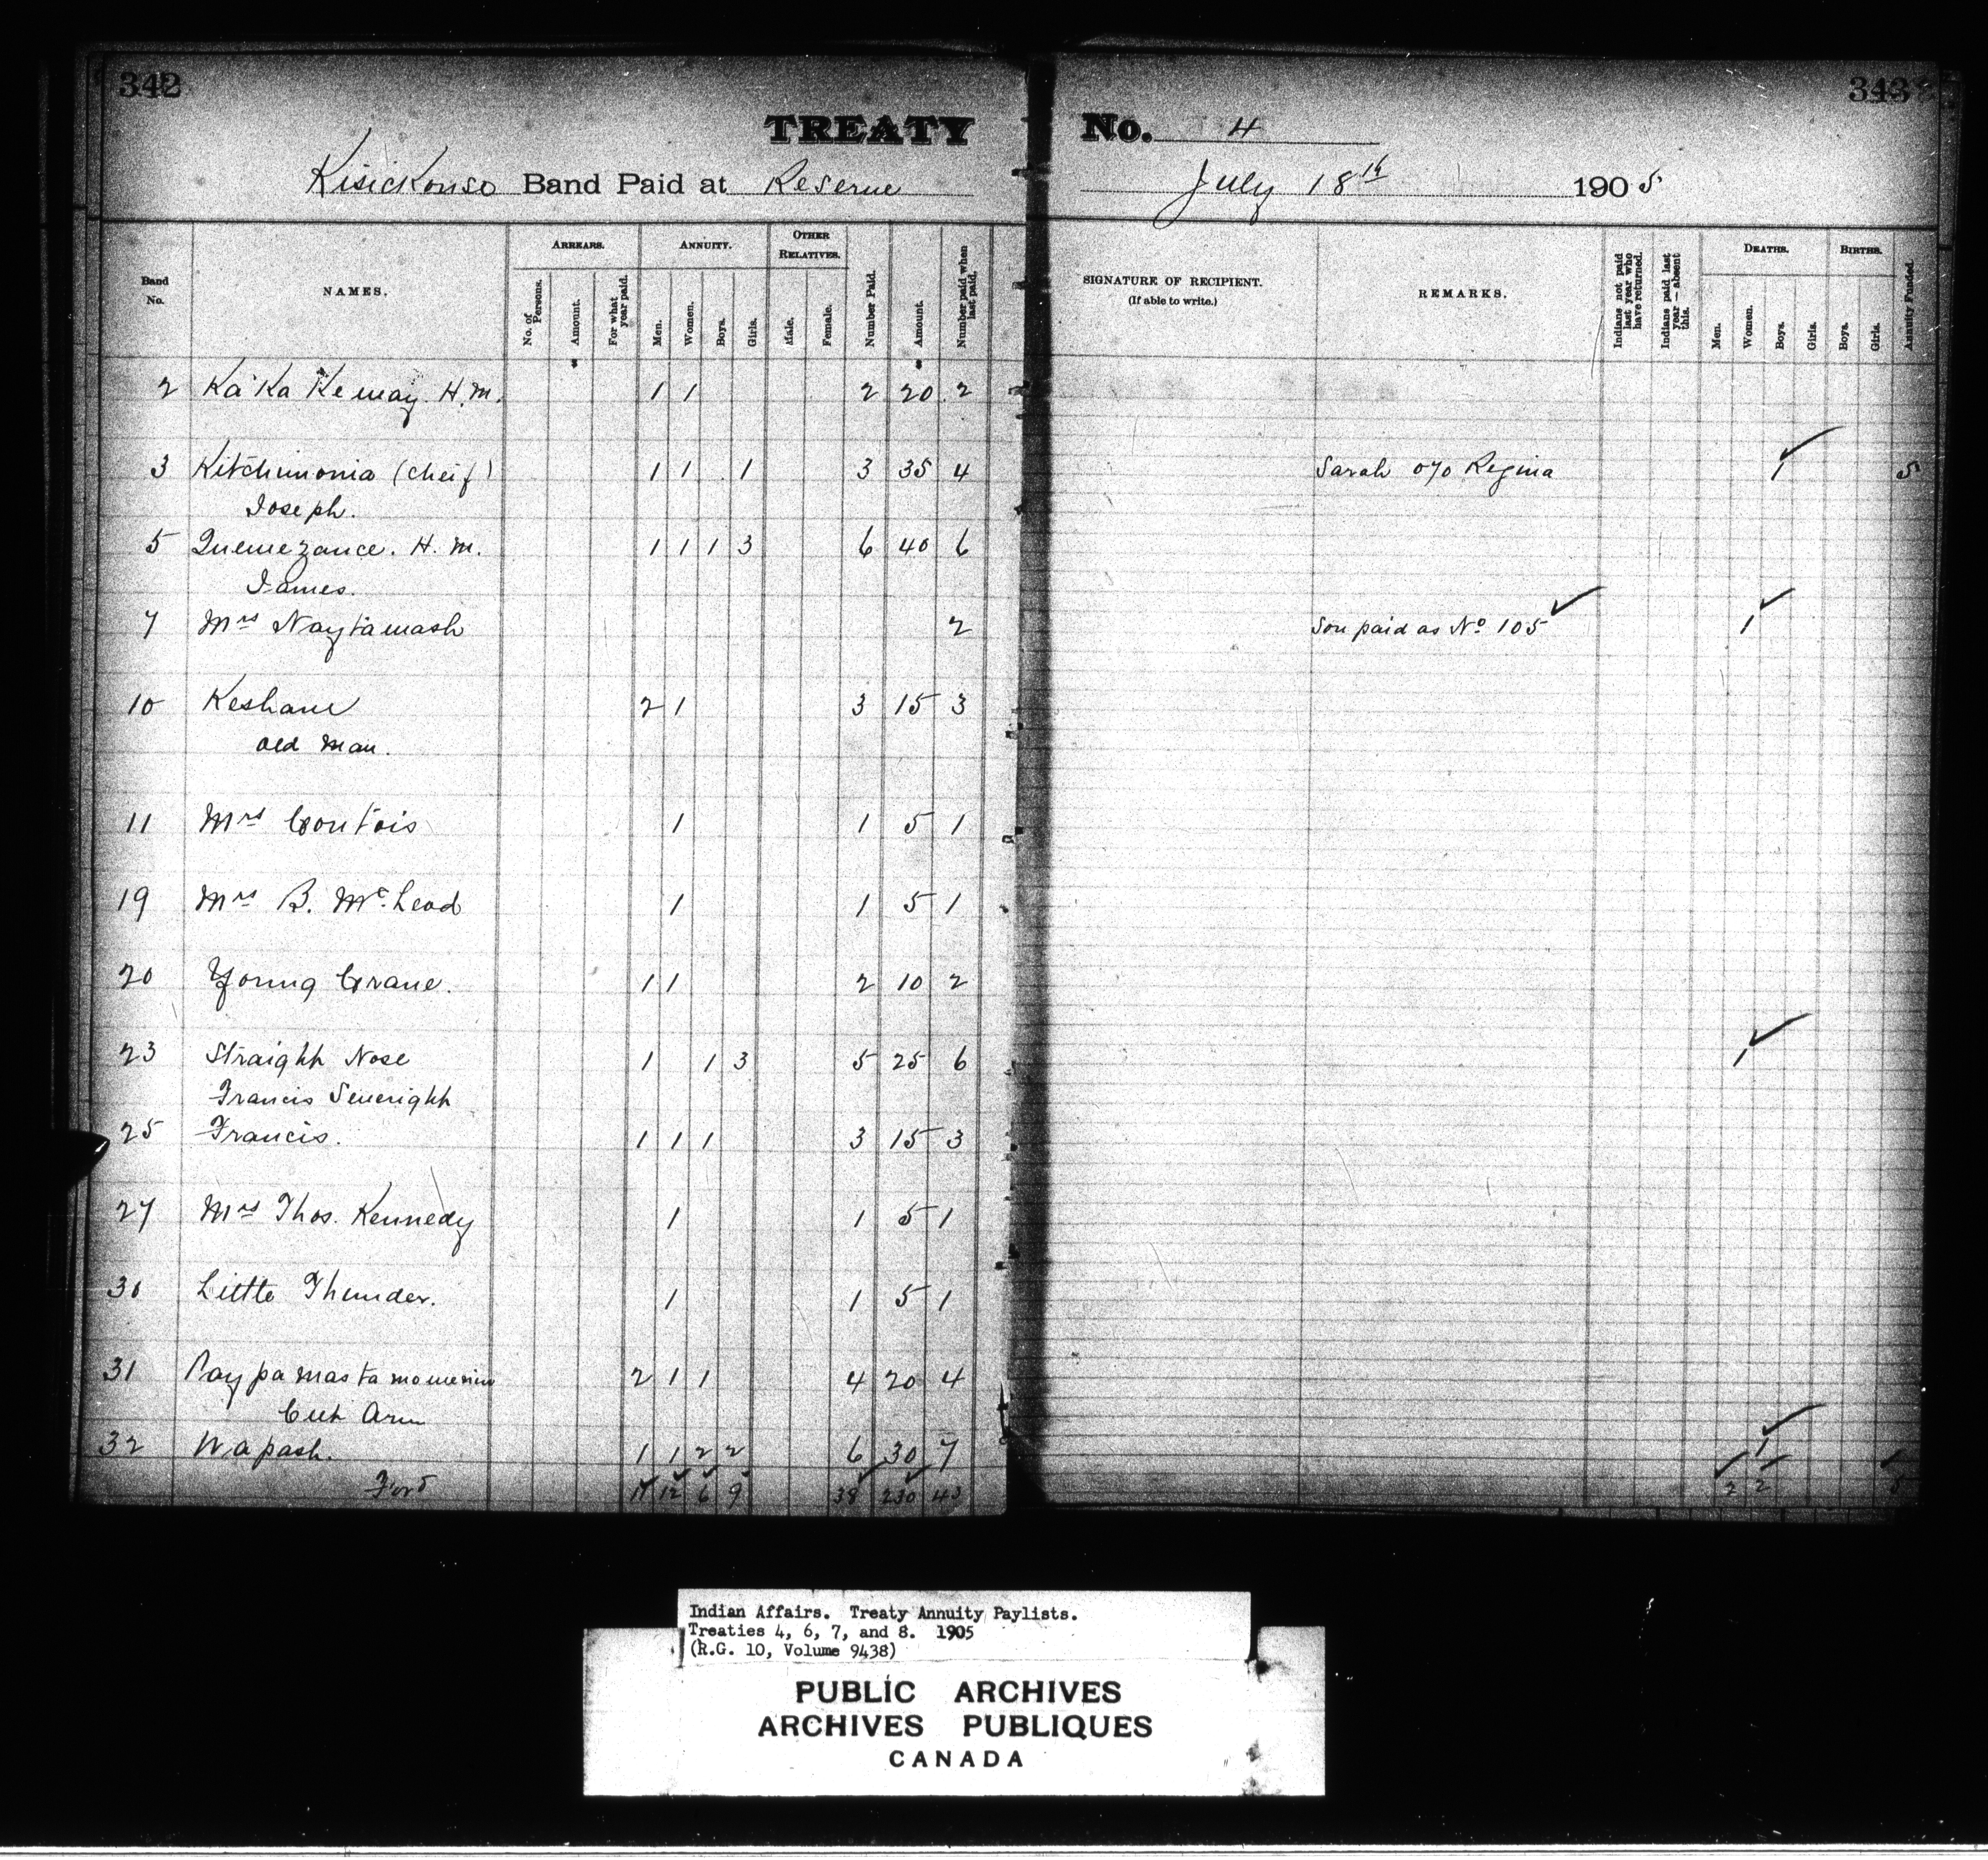 342
343
TREATY No. 4
Kisickouse Band Paid at Reserve July 18th 1905
Band No. NAMES. ARREARS. ANNUITY. OTHER RELATIVES. Number Paid. Amount. Number paid when last paid.
No. of Persons. Amount. For what year paid. Men. Women. Boys. Girls. Male. Female.
SIGNATURE OF RECIPIENT. (If able to write.) REMARKS. Indians not paid last year who have returned. Indians paid last year — absent this. DEATHS. BIRTHS. Annuity Funded.
Men. Women. Boys. Girls. Boys. Girls.
2 Ka Ka Ke way. H.M. 1 1 2 20 2
3 Kitchimonia (Cheif) 1 1 1 3 35 4 Sarah o/o Regina 1 5
Joseph.
5 Quewezance. H. M. 1 1 1 3 6 40 6
James.
7 Mrs Naytamash 2 Son paid as No 105 1
10 Keshane 2 1 3 15 3
Old Man.
11 Mrs Contois 1 1 5 1
19 Mrs B. McLeod 1 1 5 1
20 Young Crane. 1 1 2 10 2
23 Straight Nose 1 1 3 5 25 6 1
Francis Severight
25 Francis. 1 1 1 3 15 3
27 Mrs Thos. Kennedy 1 1 5 1
30 Little Thunder. 1 1 5 1
31 2 1 1 4 20 4
Cut Arm
32 Wapash. 1 1 2 2 6 30 7 1
Ford 11 12 6 9 38 230 43 2 2 5
Indian Affairs. Treaty Annuity Paylists.
Treaties 4, 6, 7, and 8. 1905
(R.G. 10, Volume 9438)
PUBLIC ARCHIVES
ARCHIVES PUBLIQUES
CANADA